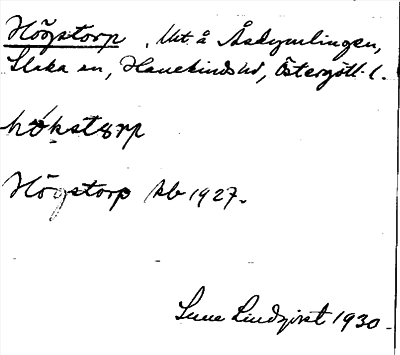 Högstorp, Utt å Åsdymlingen,
Slaka sn, Hanekinds hd, Östergötl. l.
hø̀kstɔrp
Högstorp kb 1927.
Sune Lindqvist 1930.